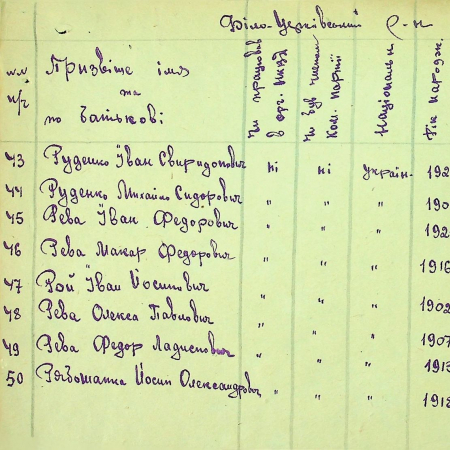 Біло-Церківський р-н
№№ п/ч Прізвіще імя та по батькові Чи працював в орг. НКВД Чи був членом Ком. партії Національн Рік народж.
43 Руденко Іван Свиридонович ні ні україн- 192
44 Руденко Михайло Сидорович " " " 190
45 Рева Іван Федорович " " " 192
46 Рева Макар Федорович " " " 1916
47 Рой Іван Йосипович " " " 1902
48 Рева Олекса Павлович " " " 1907
49 Рева Федор Ладисович " " " 1913
50 Рябошапка Йосип Олександрович " " " 1918